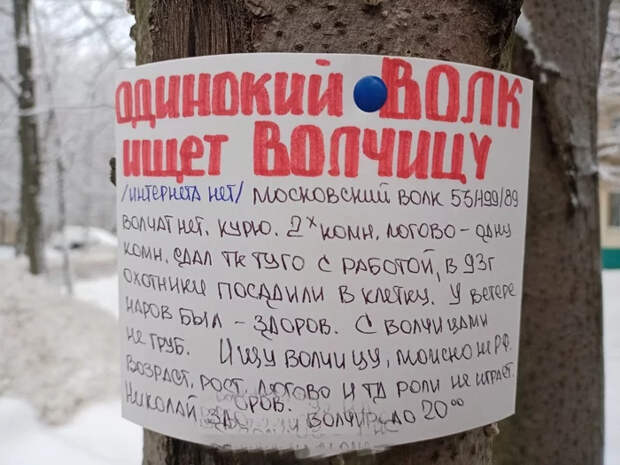 ОДИНОКИЙ ВОЛК
ИЩЕТ ВОЛЧИЦУ
/ИНТЕРНЕТА НЕТ/ МОСКОВСКИЙ ВОЛК 53/199/89
ВОЛЧАТ НЕТ, КУРЮ. 2х КОМН. ЛОГОВО - ОДНУ
КОМН. СДАЛ ТК ТУГО С РАБОТОЙ, В 93г
ОХОТНИКИ ПОСАДИЛИ В КЛЕТКУ. У ВЕТЕРЕ
НАРОВ БЫЛ - ЗДОРОВ. С ВОЛЧИЦАМИ
НЕ ГРУБ. ИЩУ ВОЛЧИЦУ, МОИСКОЖ РФ.
ВОЗРАСТ, РОСТ, ЛОГОВО И ТД РОЛИ НЕ ИГРАЕТ.
НИКОЛАЙ, ДО 20 00